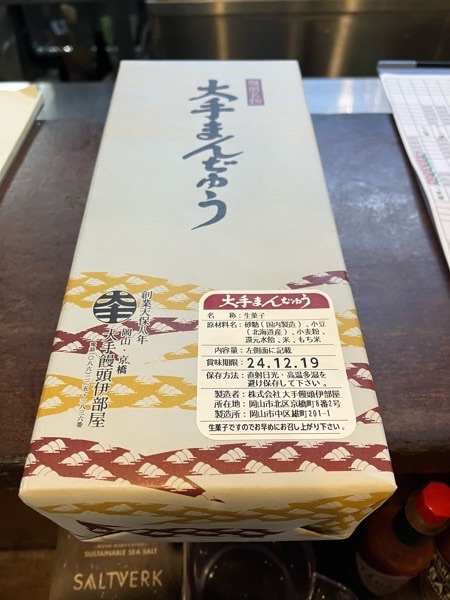 大手まんぢゅう
創業天保八年
岡山 京橋
大手饅頭伊部屋
大手まんぢゅう
名 称:生菓子
原材料名:砂糖(国内製造)、小豆
(北海道産)、小麦粉、
還元水飴、米、もち米
内容量:左側面に記載
賞味期限:24.12.19
保存方法:直射日光・高温多湿を
避け保存して下さい。
製造者:株式会社大手饅頭伊部屋
所在地:岡山市北区京橋町8番2号
製造所:岡山市中区雄町201-1
生菓子ですのでお早めにお召し上がり下さい。
SUSTAINABLE SEA SALT
SALTVERK